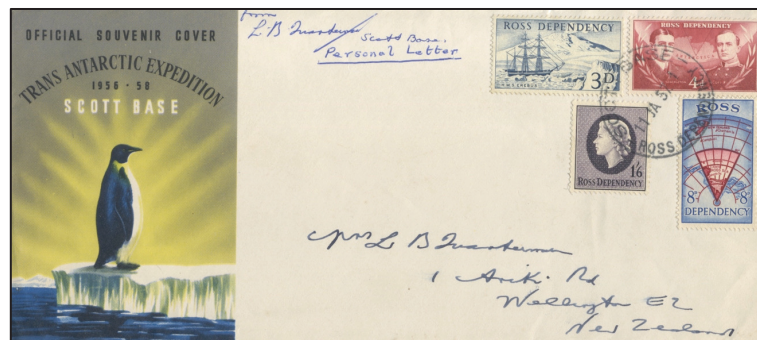 OFFICIAL SOUVENIR COVER
TRANS ANTARCTIC EXPEDITION
1956 - 58
SCOTT BASE
from
L. B Quartermain
Scott Base.
Personal Letter
ROSS DEPENDENCY
3D
ROSS DEPENDENCY
4d
1/6
ROSS·DEPENDENCY
ROSS
8d 8d
DEPENDENCY
SCOTT BASE
11 JA 57
ROSS DEPENDENCY
Mrs L B Quartermain
1 Ariki Rd
Wellington E2
New Zealand